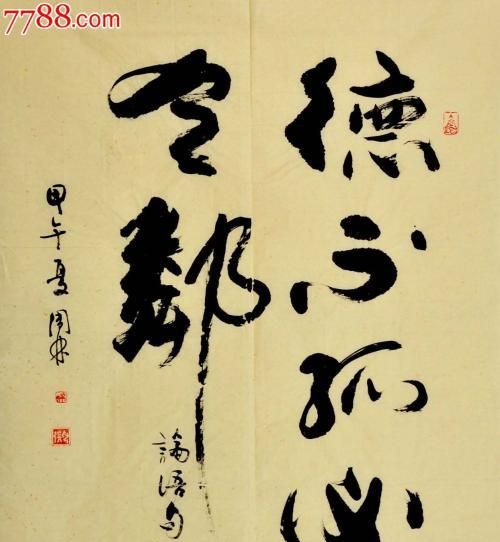 7788.com
德不孤必
有鄰
論语句
甲午夏周林